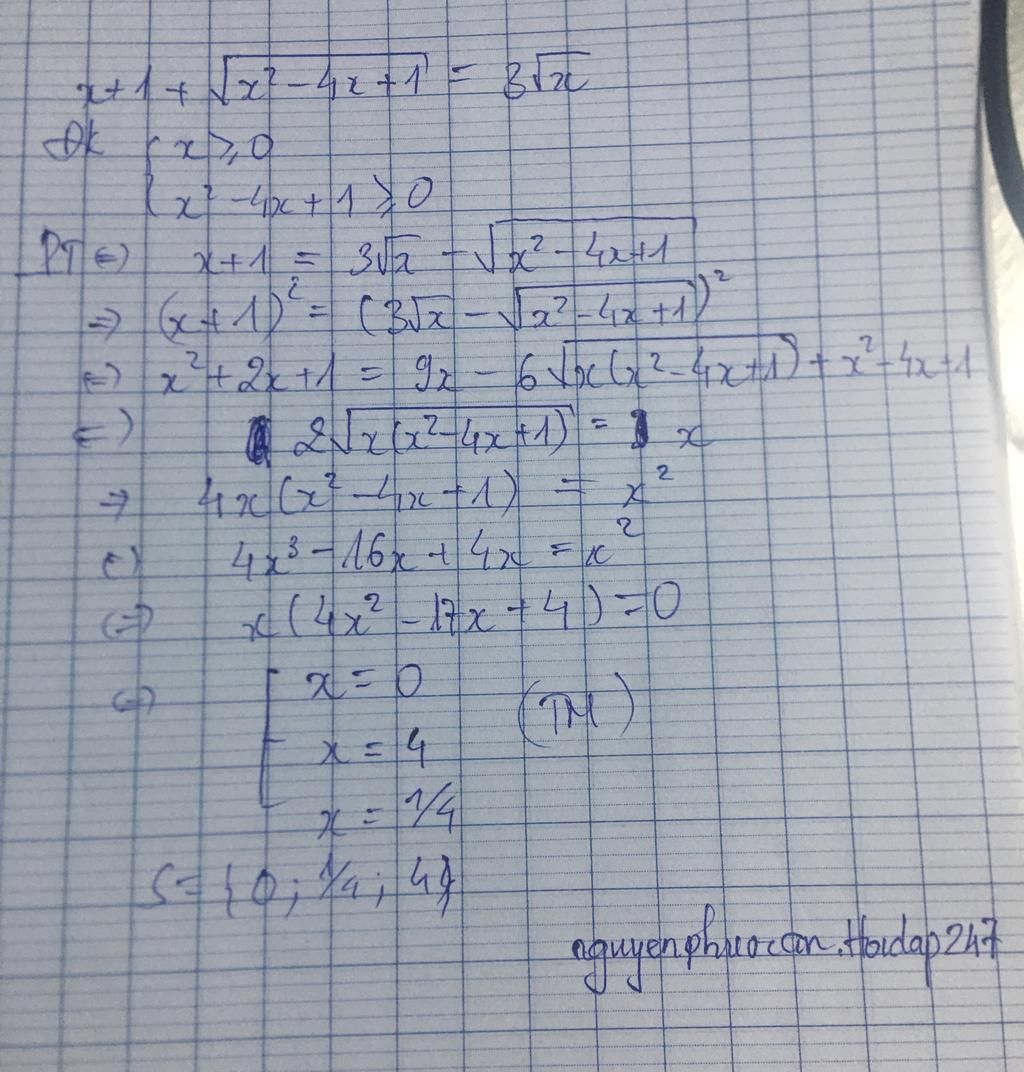 x+1+√(x²-4x+1) = 3√x
ĐK { x ≥ 0
{ x² -4x+1 ≥ 0
PT ⇔) x+1 = 3√x - √(x²-4x+1)
⇒ (x+1)² = (3√x - √(x²-4x+1))²
⇔) x²+2x+1 = 9x - 6√(x(x²-4x+1)) + x²-4x+1
⇔) 2√(x(x²-4x+1)) = x
⇒ 4x(x²-4x+1) = x²
⇔) 4x³-16x+4x = x²
⇔) x(4x²-17x+4)=0
⇔) [ x = 0
x = 4 (TM)
x = 1/4
S={0; 1/4; 4}
nguyenphuoctan.Hoidap247